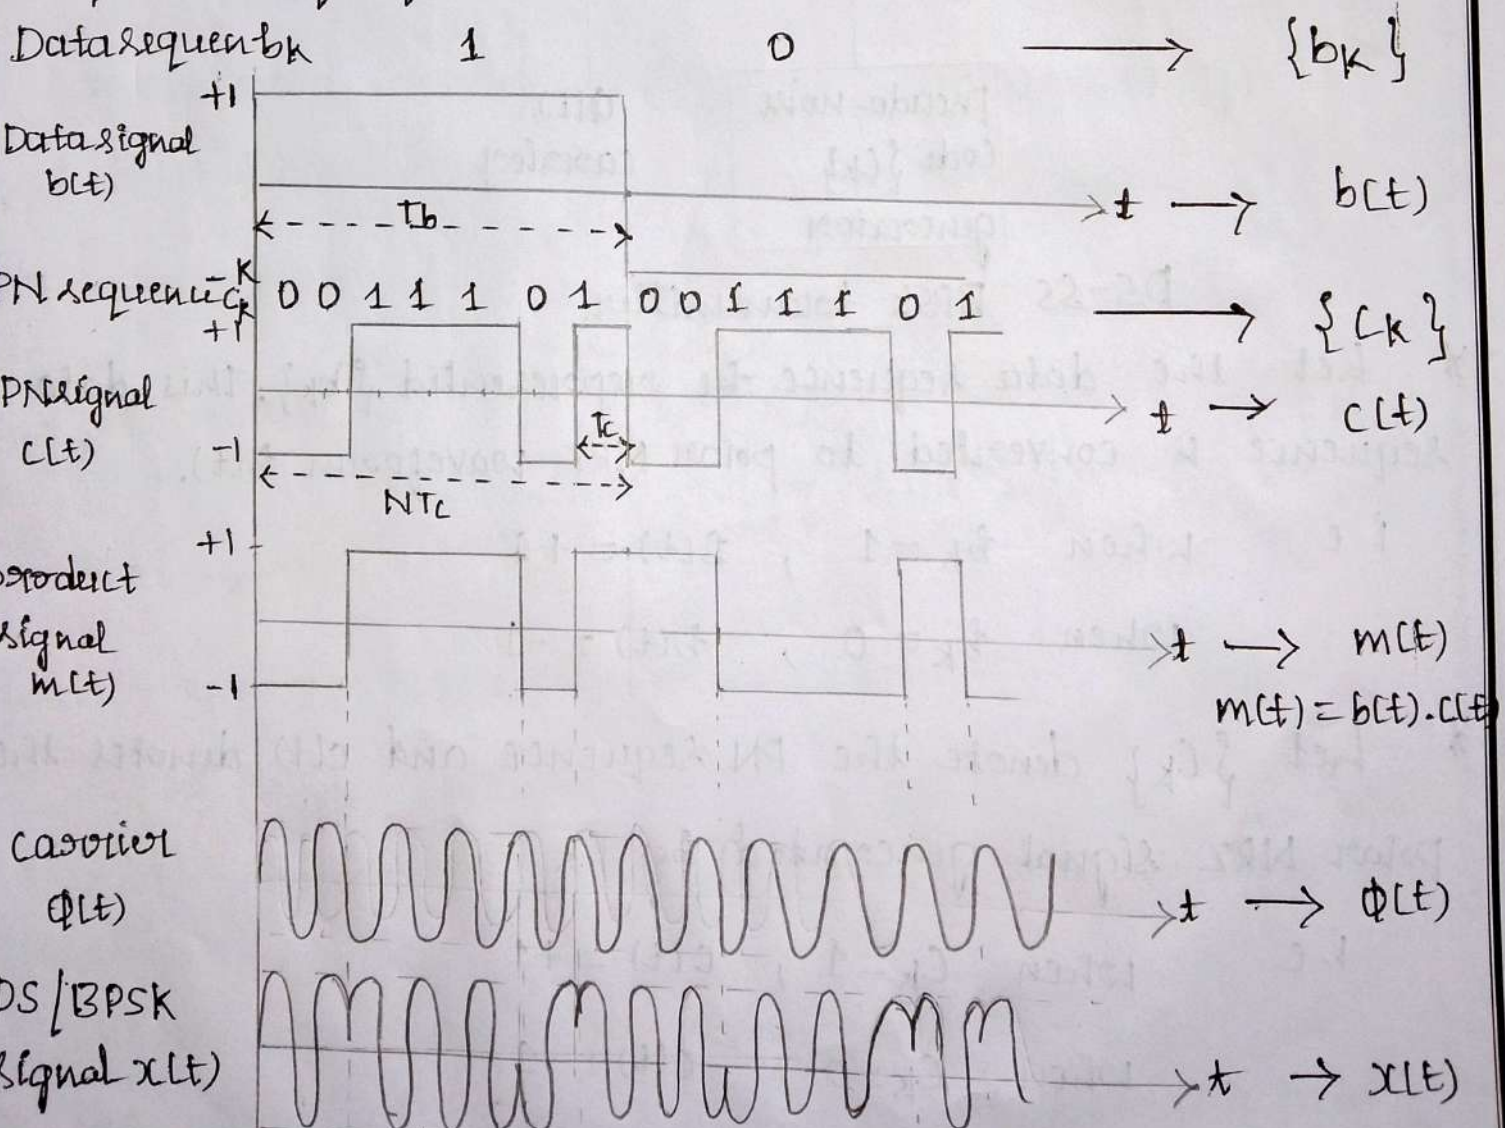 Data sequen bk 1 0 → {bk}
+1
Data signal
b(t)
t → b(t)
Tb
-1
PN sequence ck 0 0 1 1 1 0 1 0 0 1 1 1 0 1 → {ck}
+1
PN signal
c(t)
t → c(t)
Tc
-1
NTc
+1
product
signal
m(t)
t → m(t)
-1
m(t) = b(t).c(t)
carrier
φ(t)
t → φ(t)
DS/BPSK
signal x(t)
t → x(t)